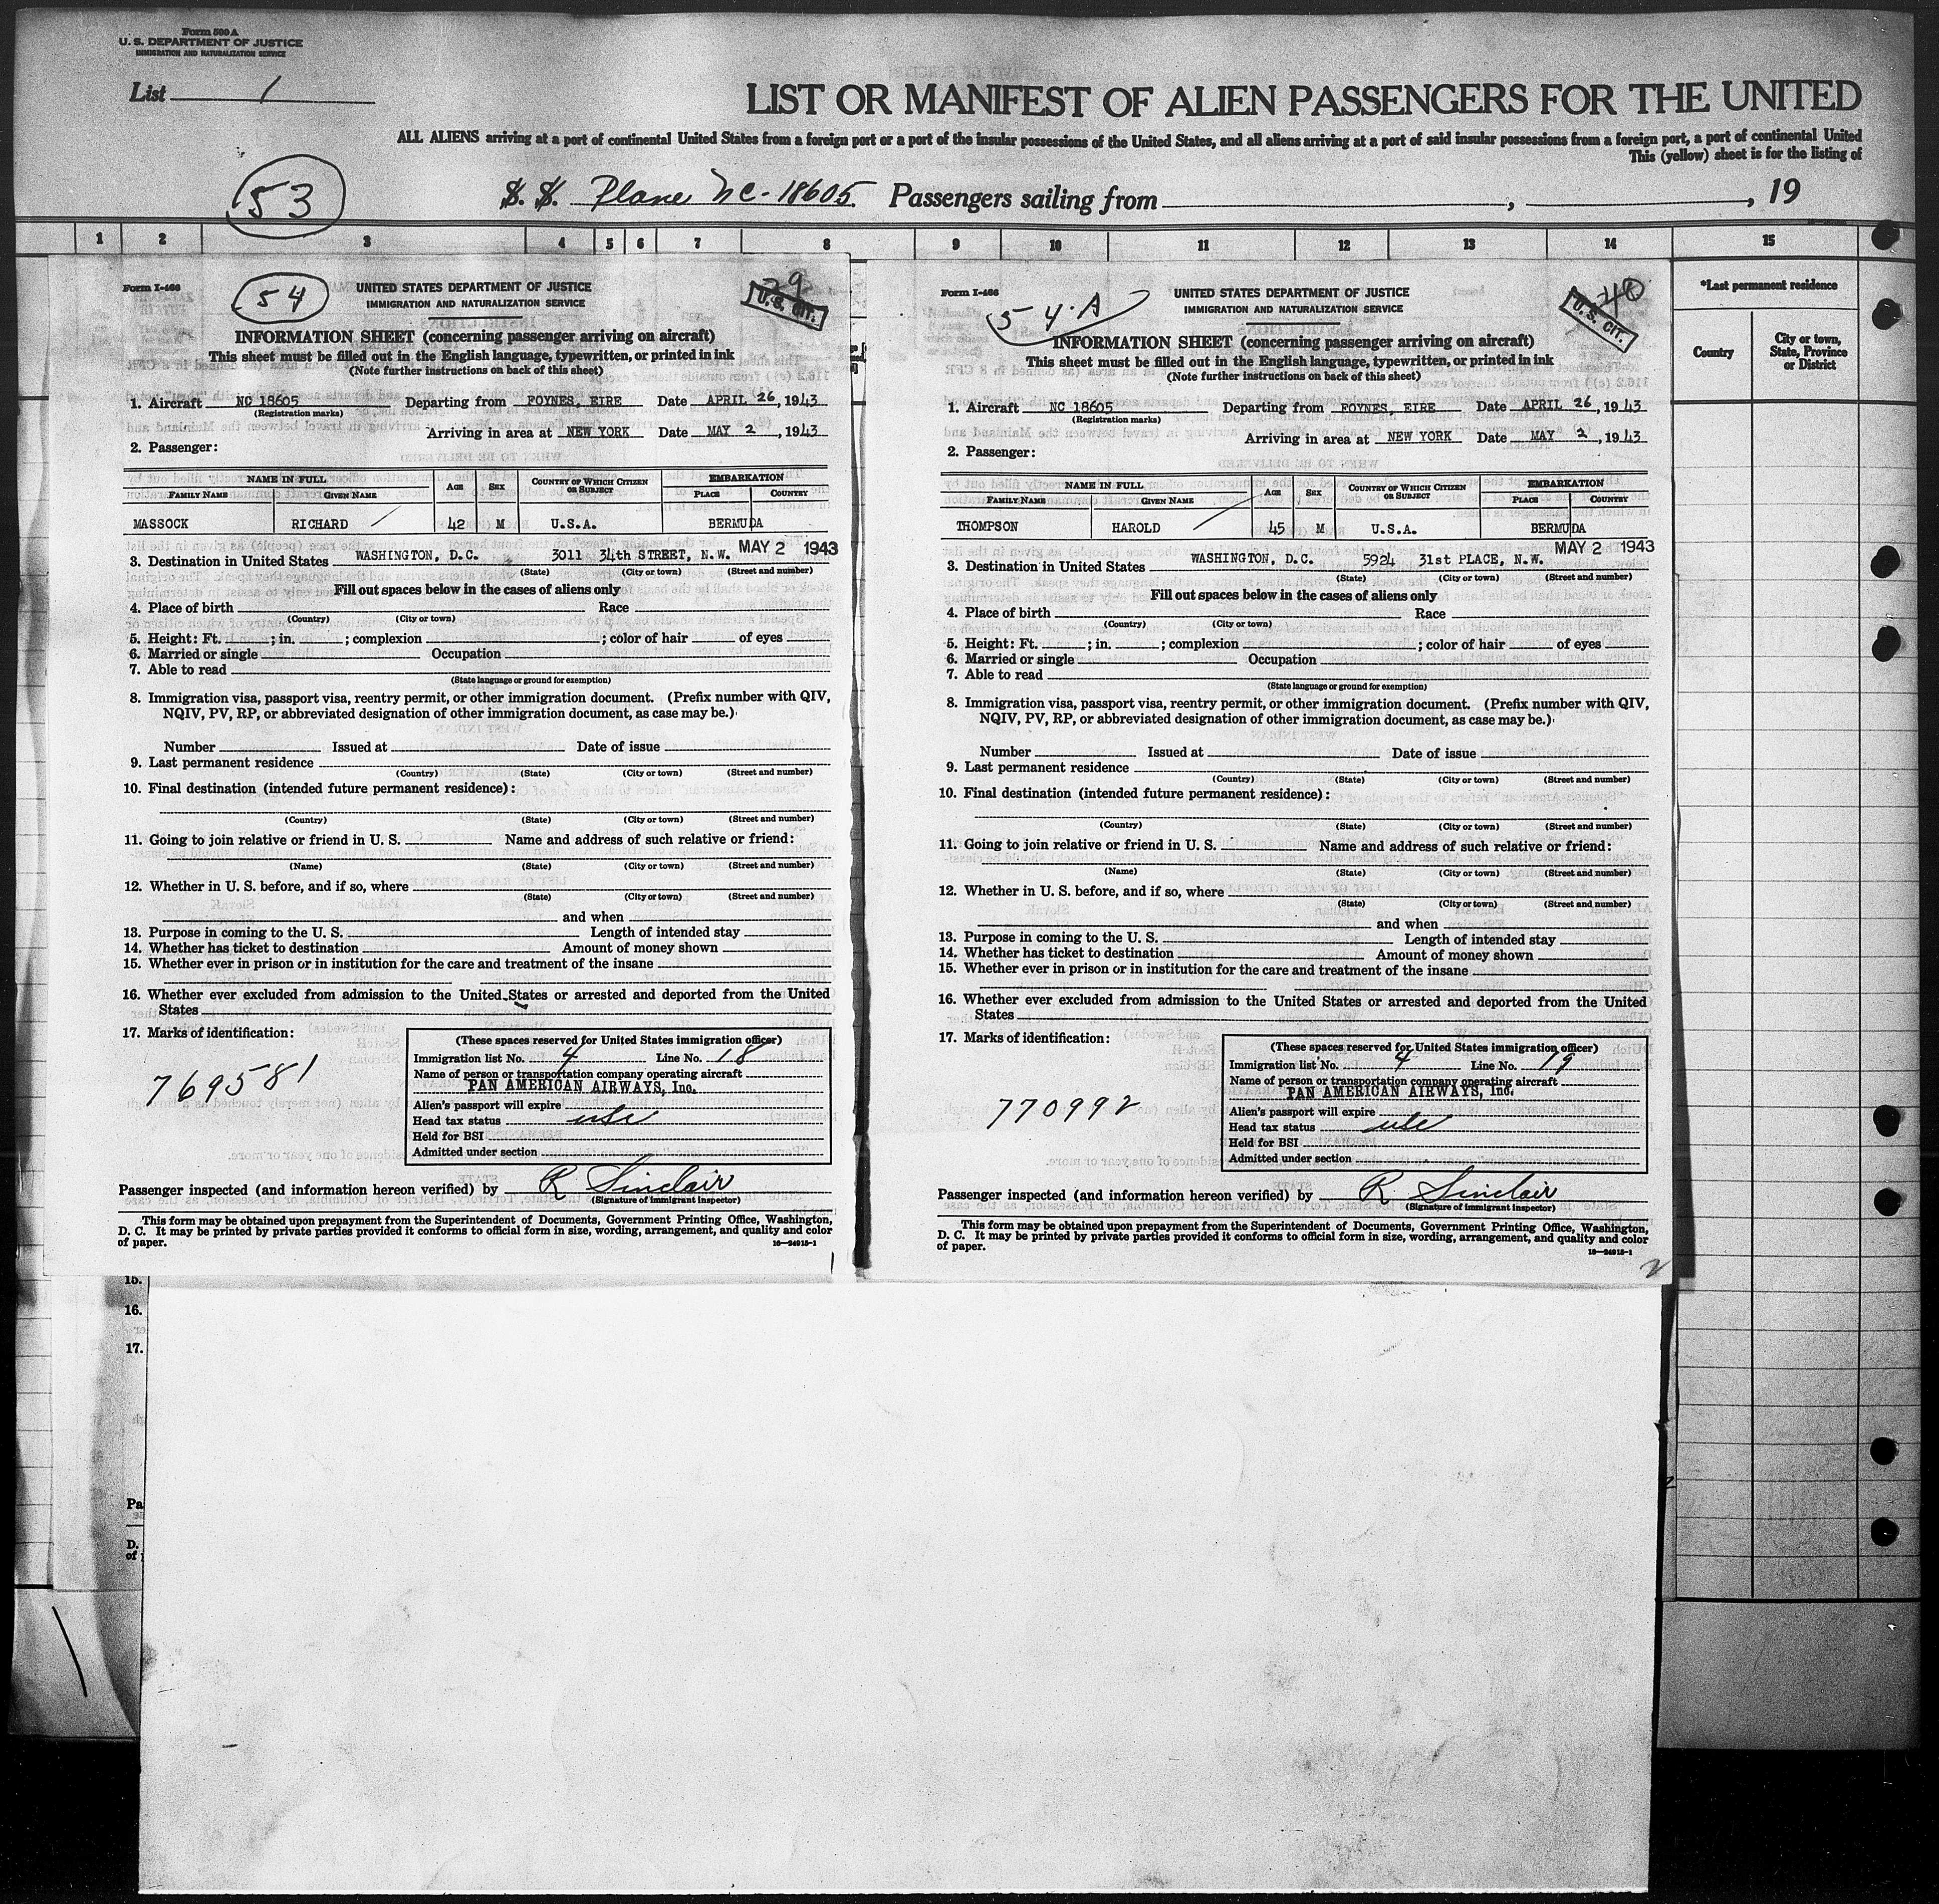 Form 500 A
U. S. DEPARTMENT OF JUSTICE
IMMIGRATION AND NATURALIZATION SERVICE
List 1
LIST OR MANIFEST OF ALIEN PASSENGERS FOR THE UNITED
ALL ALIENS arriving at a port of continental United States from a foreign port or a port of the insular possessions of the United States, and all aliens arriving at a port of said insular possessions from a foreign port, a port of continental United
This (yellow) sheet is for the listing of
53
S. S. Plane NC-18605 Passengers sailing from , , 19
1 2 3 4 5 6 7 8 9 10 11 12 13 14 15
*Last permanent residence
Country
City or town, State, Province or District
Form I-466
54
UNITED STATES DEPARTMENT OF JUSTICE
IMMIGRATION AND NATURALIZATION SERVICE
U.S. CIT.
INFORMATION SHEET (concerning passenger arriving on aircraft)
This sheet must be filled out in the English language, typewritten, or printed in ink
(Note further instructions on back of this sheet)
1. Aircraft NC 18605 Departing from FOYNES, EIRE Date APRIL 26, 1943
(Registration marks)
Arriving in area at NEW YORK Date MAY 2, 1943
2. Passenger:
NAME IN FULL AGE SEX COUNTRY OF WHICH CITIZEN OR SUBJECT EMBARKATION
FAMILY NAME GIVEN NAME PLACE COUNTRY
MASSOCK RICHARD 42 M U.S.A. BERMUDA
MAY 2 1943
3. Destination in United States WASHINGTON, D.C. 3011 34th STREET, N.W.
(State) (City or town) (Street and number)
Fill out spaces below in the cases of aliens only
4. Place of birth Race
(Country) (City or town)
5. Height: Ft. ; in. ; complexion ; color of hair of eyes
6. Married or single Occupation
7. Able to read
(State language or ground for exemption)
8. Immigration visa, passport visa, reentry permit, or other immigration document. (Prefix number with QIV,
NQIV, PV, RP, or abbreviated designation of other immigration document, as case may be.)
Number Issued at Date of issue
9. Last permanent residence
(Country) (State) (City or town) (Street and number)
10. Final destination (intended future permanent residence):
(Country) (State) (City or town) (Street and number)
11. Going to join relative or friend in U. S. Name and address of such relative or friend:
(Name) (State) (City or town) (Street and number)
12. Whether in U. S. before, and if so, where
(State) (City or town) (Street and number)
and when
13. Purpose in coming to the U. S. Length of intended stay
14. Whether has ticket to destination Amount of money shown
15. Whether ever in prison or in institution for the care and treatment of the insane
16. Whether ever excluded from admission to the United States or arrested and deported from the United
States
17. Marks of identification:
769581
(These spaces reserved for United States immigration officer)
Immigration list No. 4 Line No. 18
Name of person or transportation company operating aircraft
PAN AMERICAN AIRWAYS, Inc.
Alien's passport will expire
Head tax status usc
Held for BSI
Admitted under section
Passenger inspected (and information hereon verified) by R. Sinclair
(Signature of immigrant inspector)
This form may be obtained upon prepayment from the Superintendent of Documents, Government Printing Office, Washington,
D. C. It may be printed by private parties provided it conforms to official form in size, wording, arrangement, and quality and color
of paper.
16—24915-1
Form I-466
54-A
UNITED STATES DEPARTMENT OF JUSTICE
IMMIGRATION AND NATURALIZATION SERVICE
40
U.S. CIT.
INFORMATION SHEET (concerning passenger arriving on aircraft)
This sheet must be filled out in the English language, typewritten, or printed in ink
(Note further instructions on back of this sheet)
1. Aircraft NC 18605 Departing from FOYNES, EIRE Date APRIL 26, 1943
(Registration marks)
Arriving in area at NEW YORK Date MAY 2, 1943
2. Passenger:
NAME IN FULL AGE SEX COUNTRY OF WHICH CITIZEN OR SUBJECT EMBARKATION
FAMILY NAME GIVEN NAME PLACE COUNTRY
THOMPSON HAROLD 45 M U.S.A. BERMUDA
MAY 2 1943
3. Destination in United States WASHINGTON, D.C. 5924 31st PLACE, N.W.
(State) (City or town) (Street and number)
Fill out spaces below in the cases of aliens only
4. Place of birth Race
(Country) (City or town)
5. Height: Ft. ; in. ; complexion ; color of hair of eyes
6. Married or single Occupation
7. Able to read
(State language or ground for exemption)
8. Immigration visa, passport visa, reentry permit, or other immigration document. (Prefix number with QIV,
NQIV, PV, RP, or abbreviated designation of other immigration document, as case may be.)
Number Issued at Date of issue
9. Last permanent residence
(Country) (State) (City or town) (Street and number)
10. Final destination (intended future permanent residence):
(Country) (State) (City or town) (Street and number)
11. Going to join relative or friend in U. S. Name and address of such relative or friend:
(Name) (State) (City or town) (Street and number)
12. Whether in U. S. before, and if so, where
(State) (City or town) (Street and number)
and when
13. Purpose in coming to the U. S. Length of intended stay
14. Whether has ticket to destination Amount of money shown
15. Whether ever in prison or in institution for the care and treatment of the insane
16. Whether ever excluded from admission to the United States or arrested and deported from the United
States
17. Marks of identification:
770992
(These spaces reserved for United States immigration officer)
Immigration list No. 4 Line No. 19
Name of person or transportation company operating aircraft
PAN AMERICAN AIRWAYS, Inc.
Alien's passport will expire
Head tax status usc
Held for BSI
Admitted under section
Passenger inspected (and information hereon verified) by R. Sinclair
(Signature of immigrant inspector)
This form may be obtained upon prepayment from the Superintendent of Documents, Government Printing Office, Washington,
D. C. It may be printed by private parties provided it conforms to official form in size, wording, arrangement, and quality and color
of paper.
16—24915-1
2
15.
16.
17.
Pa
D.
of